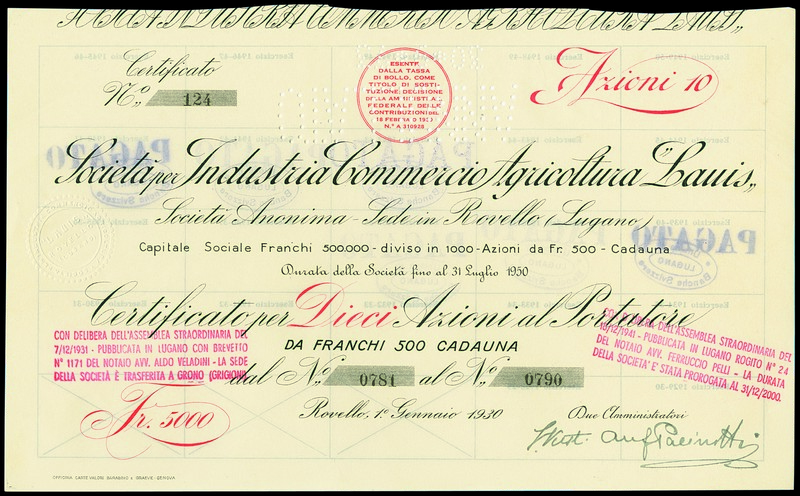 Certificato
N.º 124
ESENTE
DALLA TASSA
DI BOLLO, COME
TITOLO DI SOSTI-
TUZIONE, DECISIONE
DELLA AMMINISTRA.
FEDERALE DELLE
CONTRIBUZIONI DEL
18 FEBBRAIO 1930
N.° A 310928
Azioni 10
Società per Industria Commercio Agricoltura "Lauis"
Società Anonima - Sede in Rovello (Lugano)
Capitale Sociale Franchi 500.000 - diviso in 1000 - Azioni da Fr. 500 - Cadauna
Durata della Società fino al 31 Luglio 1950
PAGATO
PAGATO
PAGATO
Certificato per Dieci Azioni al Portatore
DA FRANCHI 500 CADAUNA
CON DELIBERA DELL'ASSEMBLEA STRAORDINARIA DEL
7/12/1931 - PUBBUCATA IN LUGANO CON BREVETTO
N° 1171 DEL NOTAIO AVV. ALDO VELADINI - LA SEDE
DELLA SOCIETÀ È TRASFERITA A GRONO (GRIGIONI)
CON DELIBERA DELL'ASSEMBLEA STRAORDINARIA DEL
10/12/1941 - PUBBUCATA IN LUGANO ROGITO N° 24
DEL NOTAIO AVV. FERRUCCIO PELLI - LA DURATA
DELLA SOCIETA' E' STATA PROROGATA AL 31/12/2000.
dal N.º 0781 al N.º 0790
Fr. 5000
Rovello, 1º Gennaio 1930
Due Amministratori
OFFICINA CARTE-VALORI BARABINO & GRAEVE - GENOVA